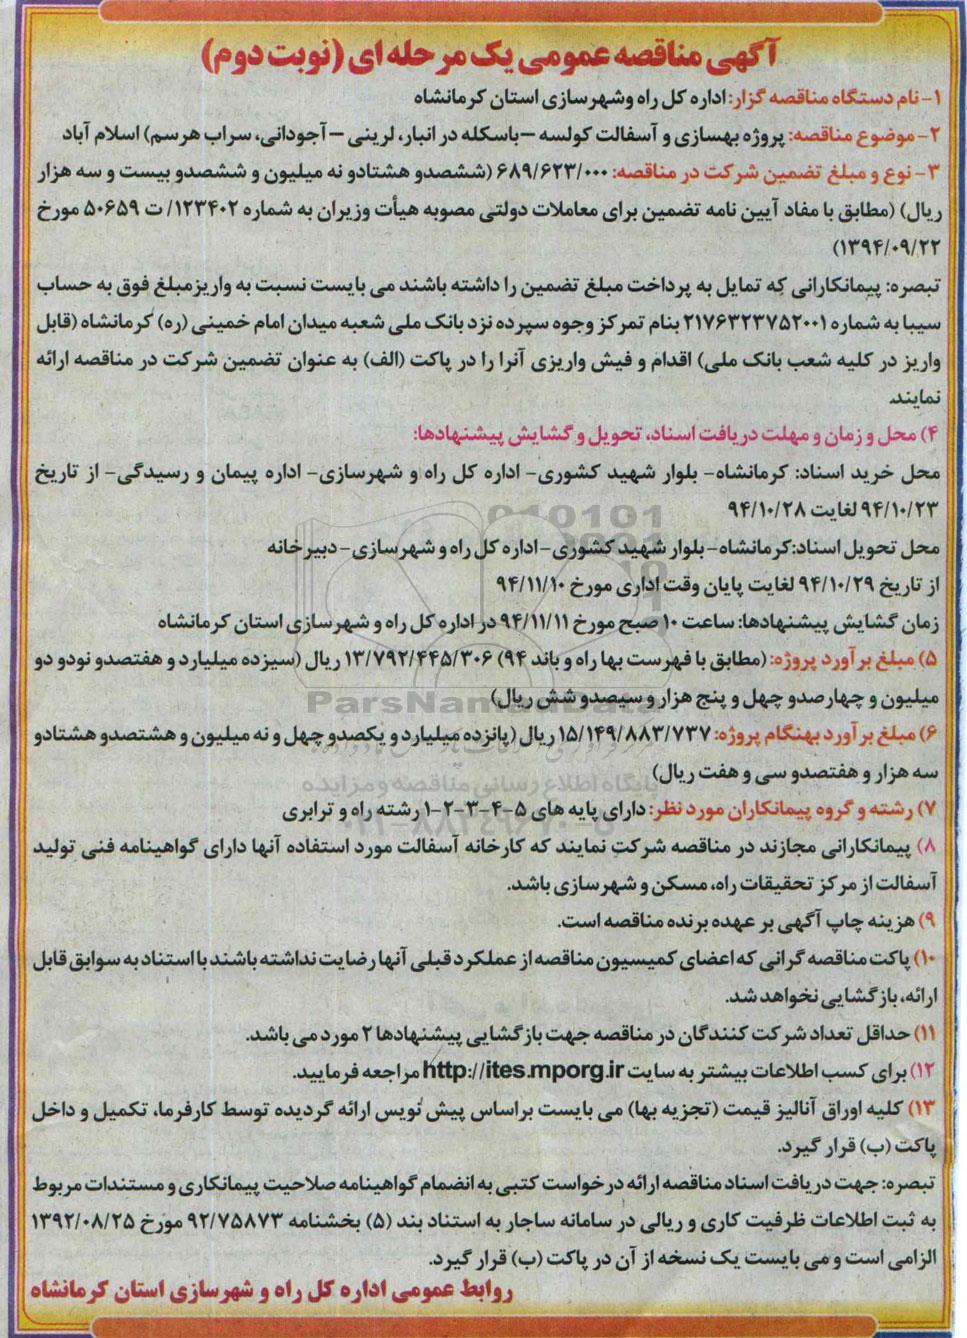 آگهی مناقصه عمومی یک مرحله ای (نوبت دوم)
۱- نام دستگاه مناقصه گزار: اداره کل راه وشهرسازی استان کرمانشاه
۲- موضوع مناقصه: پروژه بهسازی و آسفالت کولسه –باسکله در انبار، لرینی –آجودانی، سراب هرسم) اسلام آباد
۳- نوع و مبلغ تضمین شرکت در مناقصه: ۶۸۹/۶۲۳/۰۰۰ (ششصدو هشتادو نه میلیون و ششصدو بیست و سه هزار
ریال) (مطابق با مفاد آیین نامه تضمین برای معاملات دولتی مصوبه هیأت وزیران به شماره ۱۲۳۴۰۲/ ت ۵۰۶۵۹ مورخ
۱۳۹۴/۰۹/۲۲)
تبصره: پیمانکارانی که تمایل به پرداخت مبلغ تضمین را داشته باشند می بایست نسبت به واریزمبلغ فوق به حساب
سیبا به شماره ۲۱۷۶۳۲۳۷۵۲۰۰۱ بنام تمرکز وجوه سپرده نزد بانک ملی شعبه میدان امام خمینی (ره) کرمانشاه (قابل
واریز در کلیه شعب بانک ملی) اقدام و فیش واریزی آنرا را در پاکت (الف) به عنوان تضمین شرکت در مناقصه ارائه
نمایند.
۴) محل و زمان و مهلت دریافت اسناد، تحویل و گشایش پیشنهادها:
محل خرید اسناد: کرمانشاه- بلوار شهید کشوری- اداره کل راه و شهرسازی- اداره پیمان و رسیدگی- از تاریخ
۹۴/۱۰/۲۳ لغایت ۹۴/۱۰/۲۸
محل تحویل اسناد:کرمانشاه-بلوار شهید کشوری-اداره کل راه و شهرسازی-دبیرخانه
از تاریخ ۹۴/۱۰/۲۹ لغایت پایان وقت اداری مورخ ۹۴/۱۱/۱۰
زمان گشایش پیشنهادها: ساعت ۱۰ صبح مورخ ۹۴/۱۱/۱۱ در اداره کل راه و شهرسازی استان کرمانشاه
۵) مبلغ برآورد پروژه: (مطابق با فهرست بها راه و باند ۹۴) ۱۳/۷۹۲/۴۴۵/۳۰۶ ریال (سیزده میلیارد و هفتصدو نودو دو
میلیون و چهارصدو چهل و پنج هزار و سیصدو شش ریال)
ParsNamadData
۶) مبلغ برآورد بهنگام پروژه: ۱۵/۱۴۹/۸۸۳/۷۳۷ ریال (پانزده میلیارد و یکصدو چهل و نه میلیون و هشتصدو هشتادو
سه هزار و هفتصدو سی و هفت ریال)
پایگاه اطلاع رسانی مناقصه و مزایده
۷) رشته و گروه پیمانکاران مورد نظر: دارای پایه های ۵-۴-۳-۲-۱ رشته راه و ترابری
۸) پیمانکارانی مجازند در مناقصه شرکت نمایند که کارخانه آسفالت مورد استفاده آنها دارای گواهینامه فنی تولید
آسفالت از مرکز تحقیقات راه، مسکن و شهرسازی باشد.
۹) هزینه چاپ آگهی بر عهده برنده مناقصه است.
۱۰) پاکت مناقصه گرانی که اعضای کمیسیون مناقصه از عملکرد قبلی آنها رضایت نداشته باشند با استناد به سوابق قابل
ارائه، بازگشایی نخواهد شد.
۱۱) حداقل تعداد شرکت کنندگان در مناقصه جهت بازگشایی پیشنهادها ۲ مورد می باشد.
۱۲) برای کسب اطلاعات بیشتر به سایت http://ites.mporg.ir مراجعه فرمایید.
۱۳) کلیه اوراق آنالیز قیمت (تجزیه بها) می بایست براساس پیش نویس ارائه گردیده توسط کارفرما، تکمیل و داخل
پاکت (ب) قرار گیرد.
تبصره: جهت دریافت اسناد مناقصه ارائه درخواست کتبی به انضمام گواهینامه صلاحیت پیمانکاری و مستندات مربوط
به ثبت اطلاعات ظرفیت کاری و ریالی در سامانه ساجار به استناد بند (۵) بخشنامه ۹۲/۷۵۸۷۳ مورخ ۱۳۹۲/۰۸/۲۵
الزامی است و می بایست یک نسخه از آن در پاکت (ب) قرار گیرد.
روابط عمومی اداره کل راه و شهرسازی استان کرمانشاه